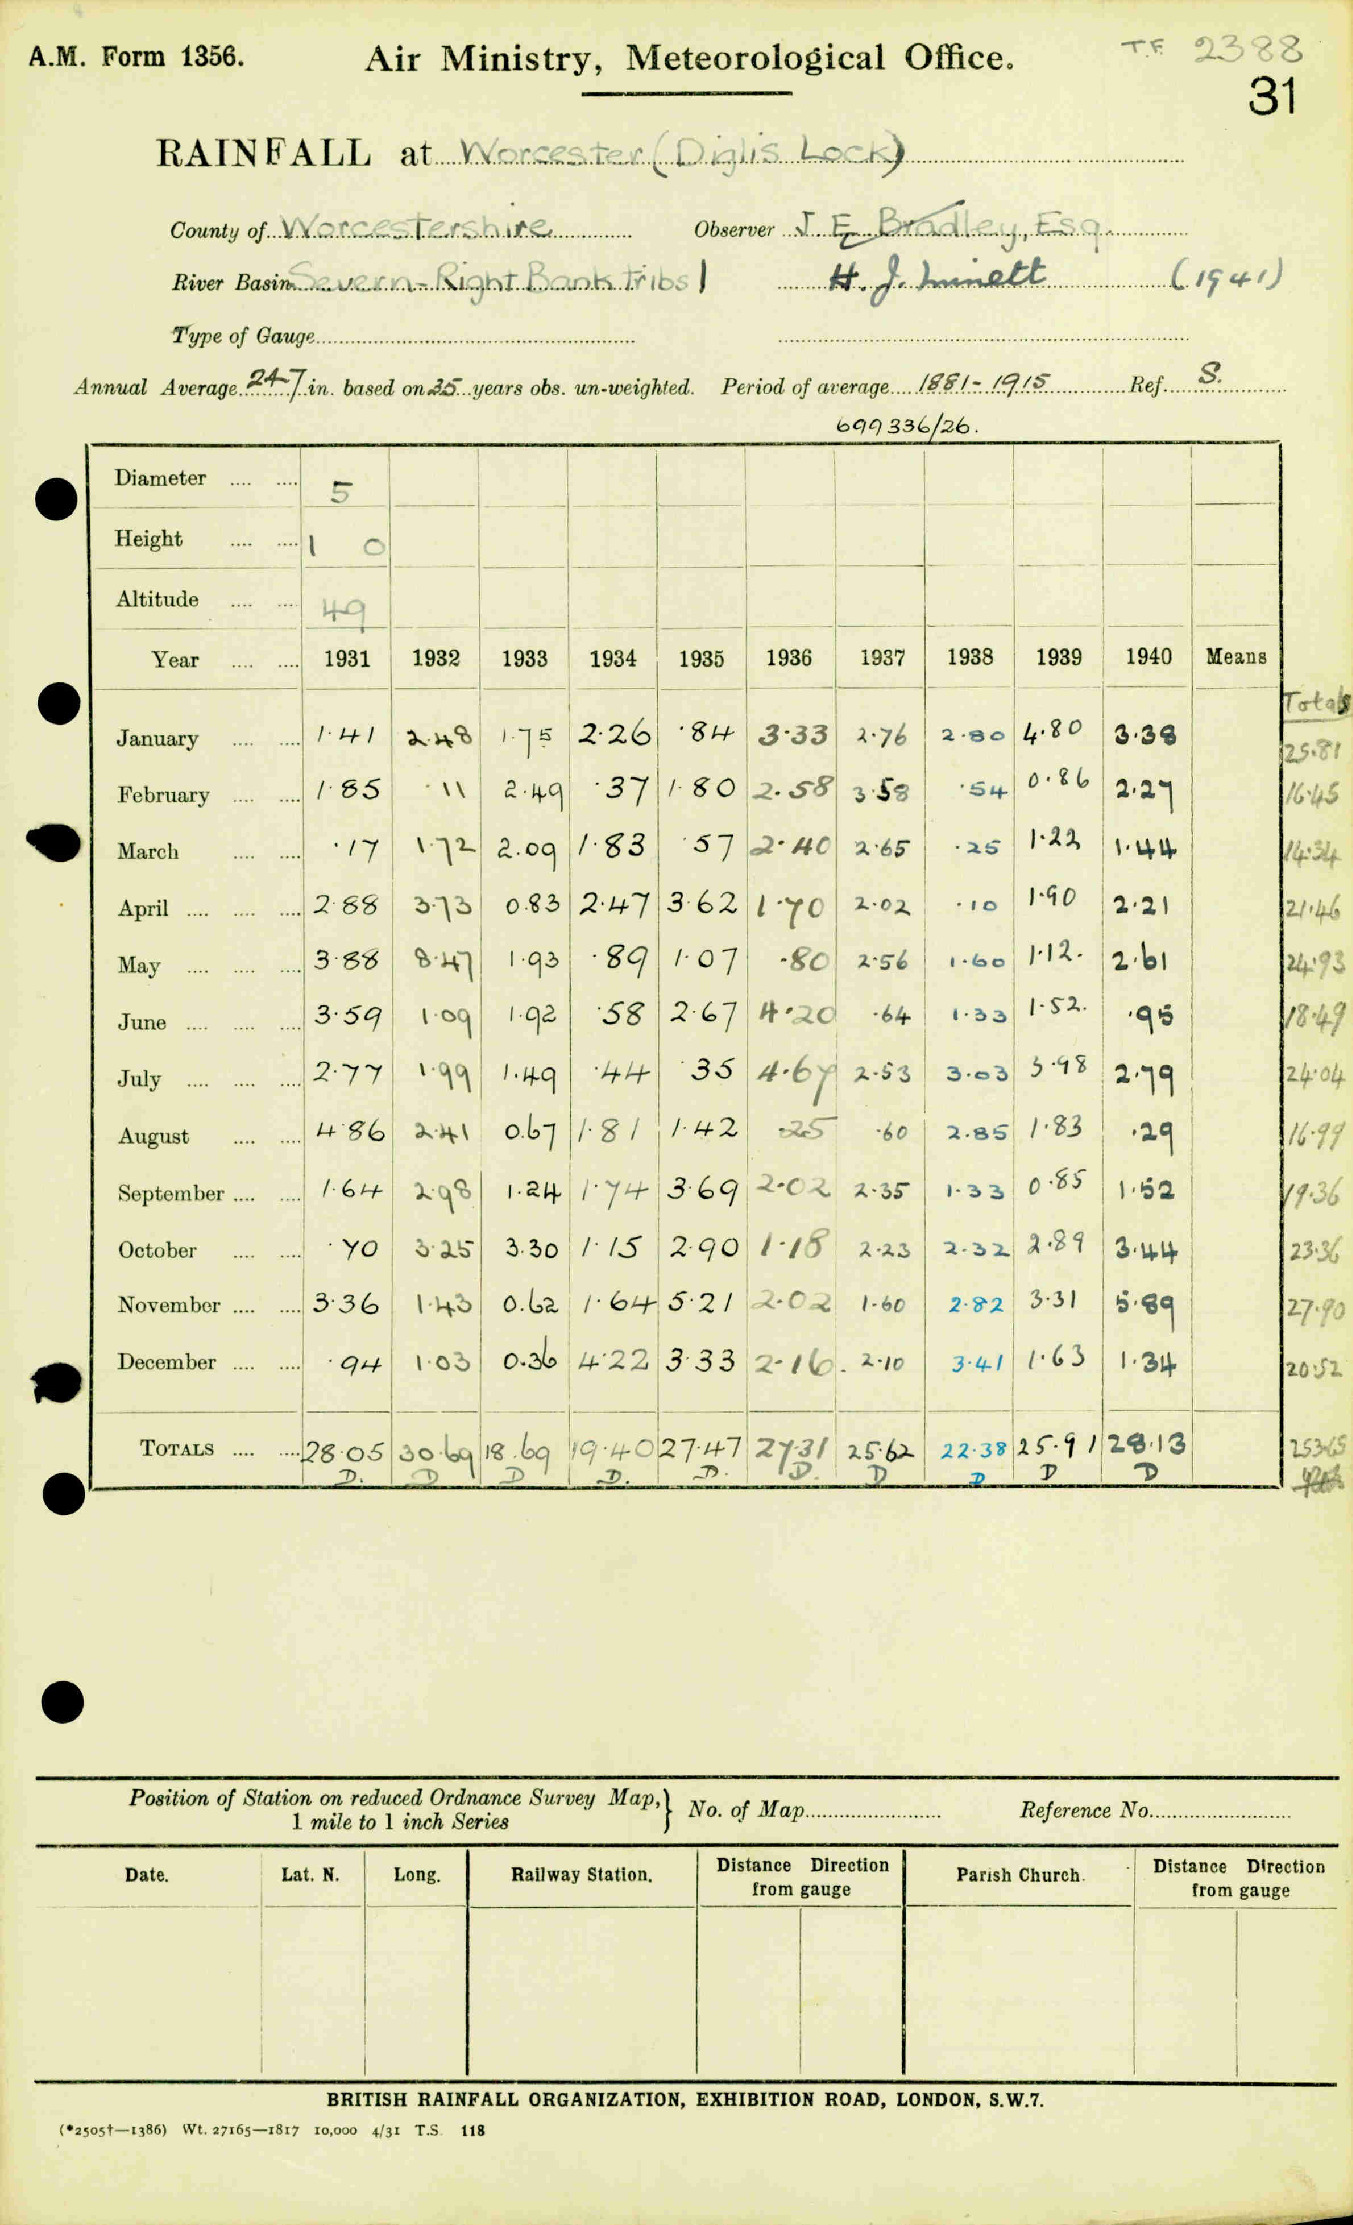 A.M. Form 1356.
Air Ministry, Meteorological Office.
T.F. 2388
31
RAINFALL at Worcester (Diglis Lock)
County of Worcestershire Observer J. E. Bradley, Esq.
River Basin Severn-Right Bank Tribs 1 H. J. Minett (1941)
Type of Gauge
Annual Average 24.7 in. based on 35 years obs. un-weighted. Period of average 1881-1915 Ref. S.
699336/26.
Diameter 5
Height 1 0
Altitude 49
Year 1931 1932 1933 1934 1935 1936 1937 1938 1939 1940 Means
Totals
January 1.41 2.48 1.75 2.26 .84 3.33 2.76 2.80 4.80 3.38 25.81
February 1.85 .11 2.49 .37 1.80 2.58 3.58 .54 0.86 2.27 16.45
March .17 1.72 2.09 1.83 .57 2.40 2.65 .25 1.22 1.44 14.34
April 2.88 3.73 0.83 2.47 3.62 1.70 2.02 .10 1.90 2.21 21.46
May 3.88 8.47 1.93 .89 1.07 .80 2.56 1.60 1.12. 2.61 24.93
June 3.59 1.09 1.92 .58 2.67 4.20 .64 1.33 1.52. .95 18.49
July 2.77 1.99 1.49 .44 .35 4.67 2.53 3.03 3.98 2.79 24.04
August 4.86 2.41 0.67 1.81 1.42 .25 .60 2.85 1.83 .29 16.99
September 1.64 2.98 1.24 1.74 3.69 2.02 2.35 1.33 0.85 1.52 19.36
October .70 3.25 3.30 1.15 2.90 1.18 2.23 2.32 2.89 3.44 23.36
November 3.36 1.43 0.62 1.64 5.21 2.02 1.60 2.82 3.31 5.89 27.90
December .94 1.03 0.36 4.22 3.33 2.16. 2.10 3.41 1.63 1.34 20.52
TOTALS 28.05 30.69 18.69 19.40 27.47 27.31 25.62 22.38 25.91 28.13 253.65
D. D D D. D. D. D D D D
Position of Station on reduced Ordnance Survey Map, 1 mile to 1 inch Series } No. of Map Reference No.
Date. Lat. N. Long. Railway Station. Distance Direction from gauge Parish Church. Distance Direction from gauge
BRITISH RAINFALL ORGANIZATION, EXHIBITION ROAD, LONDON, S.W.7.
(*2505†—1386) Wt. 27165—1817 10,000 4/31 T.S. 118